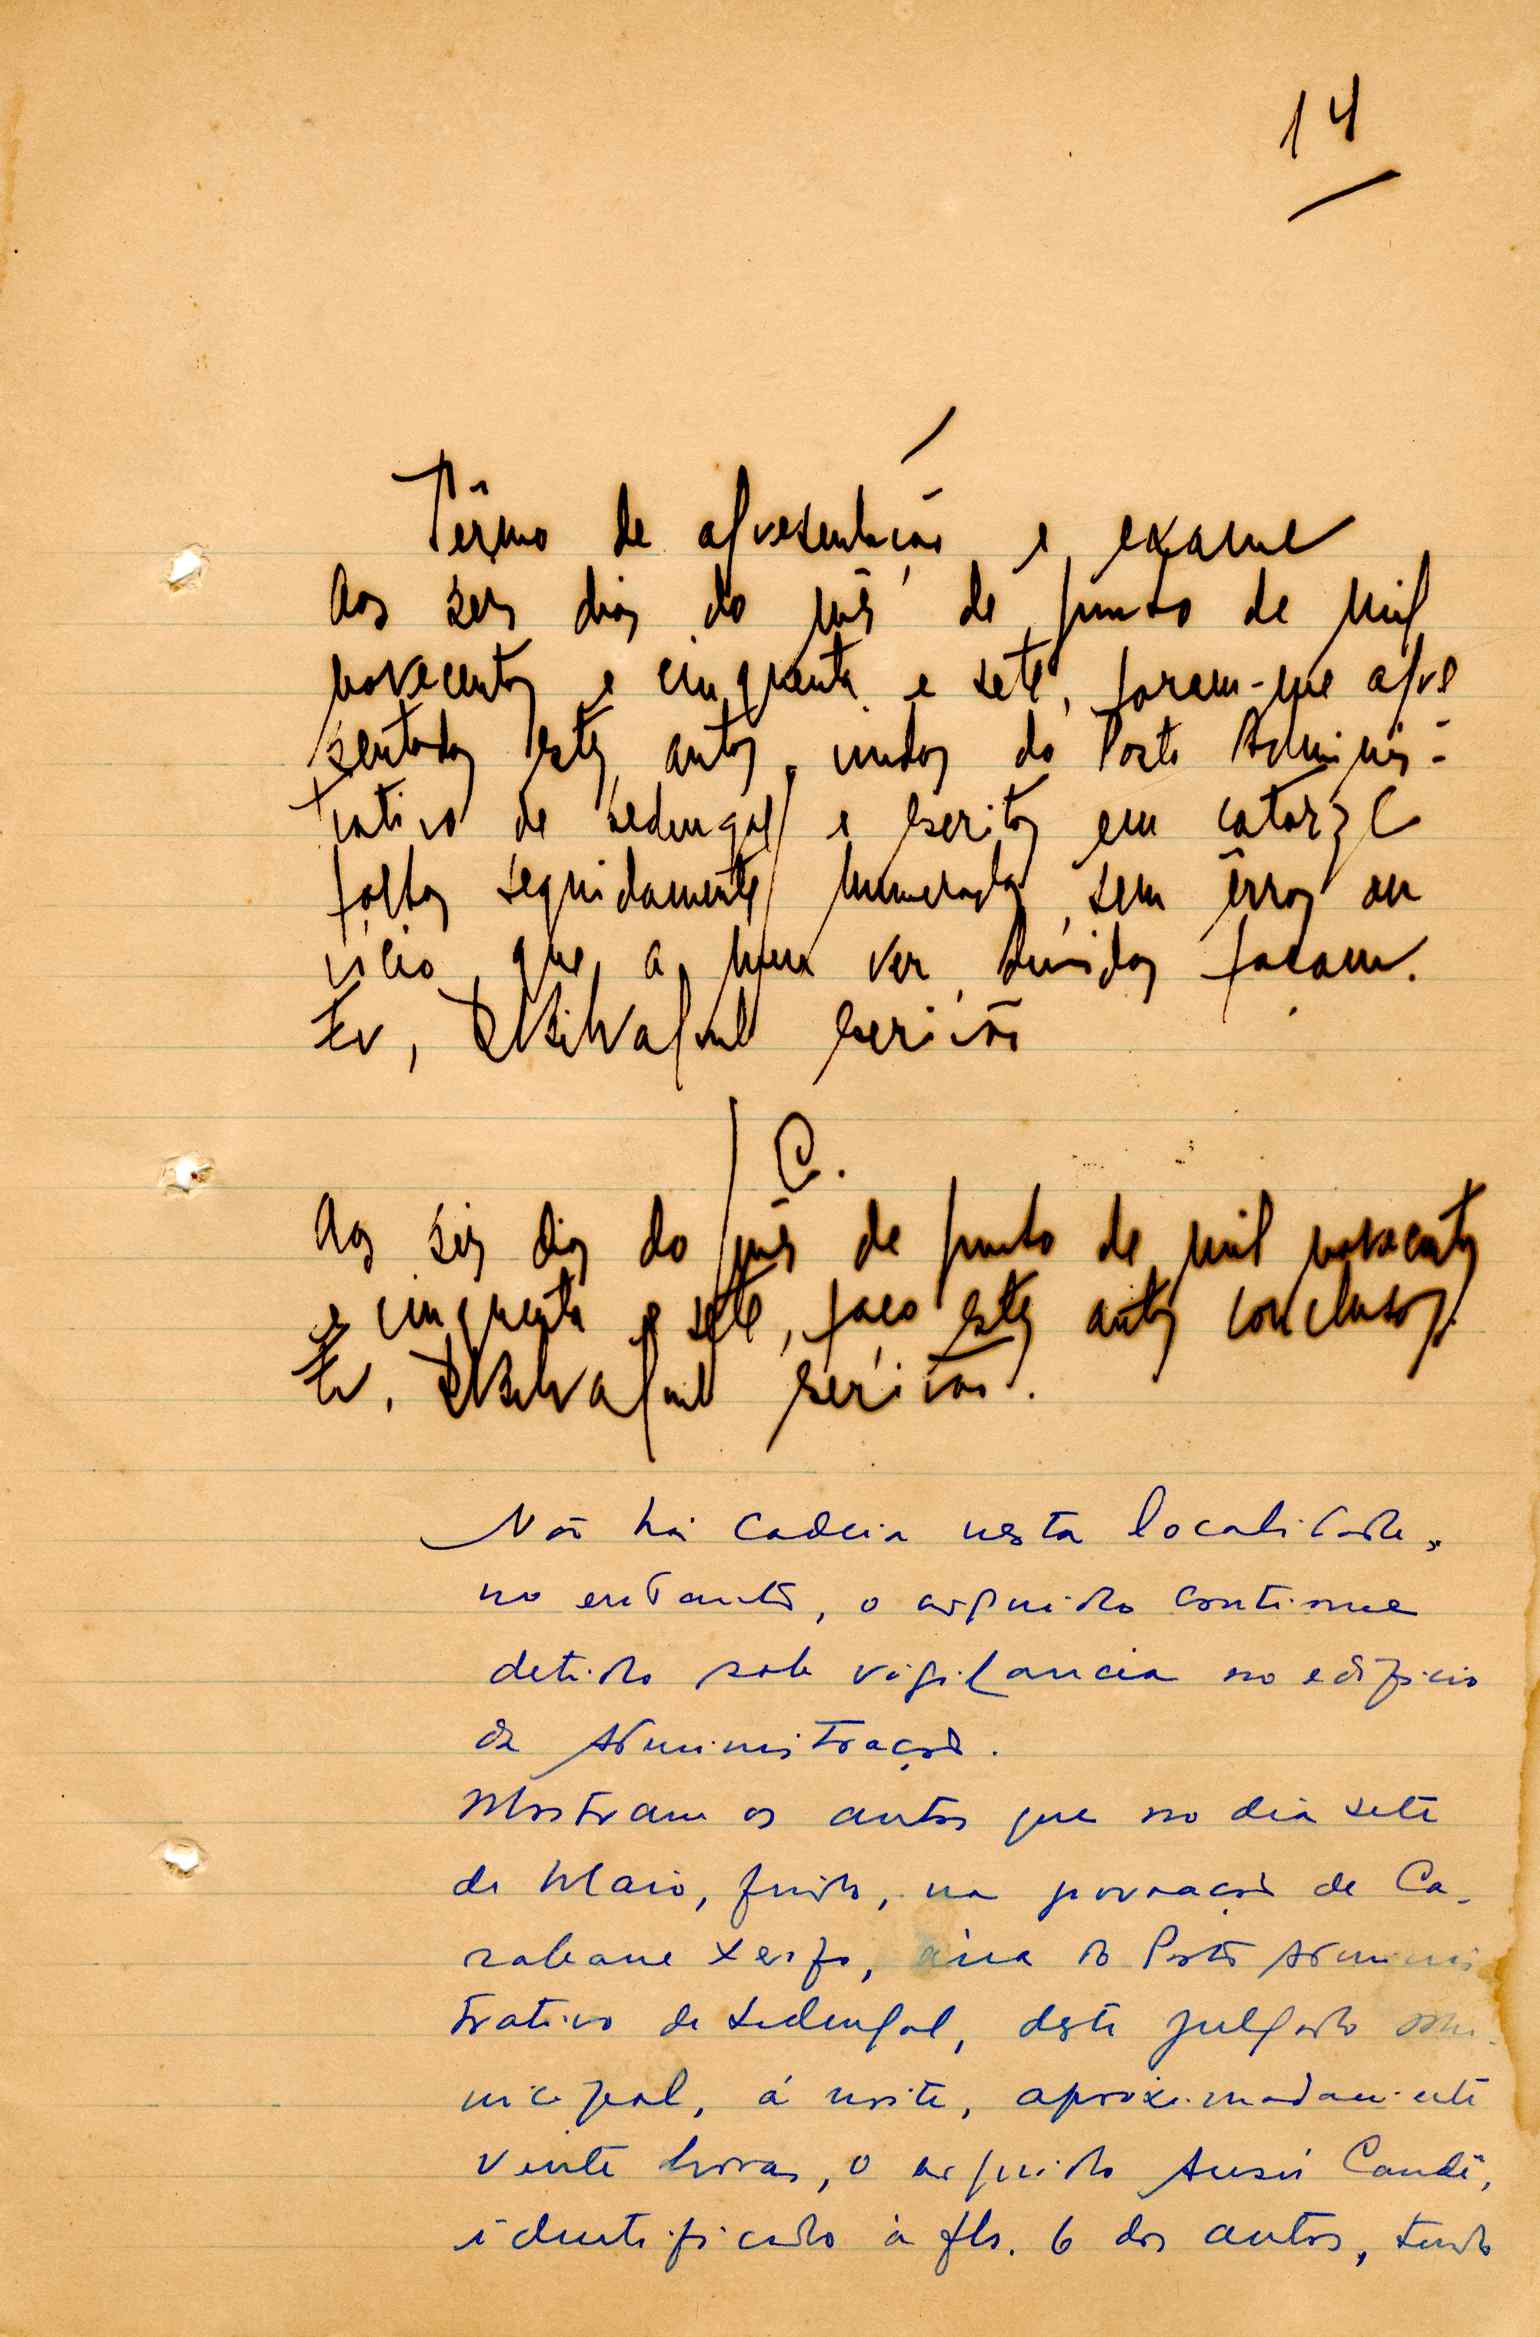 14
Têrmo de apresentação e exame
Aos seis dias do mês de Junho de mil
novecentos e cinquenta e sete, foram-me apre
sentados estes autos, vindos do Posto Adminis-
trativo de Sedengal e escritos em catorze
folhas seguidamente numeradas, sem êrros ou
vício que a meu ver dúvidas façam.
Eu, escrivão
C.
Aos seis dias do mês de Junho de mil novecentos
e cinquenta e sete, faço estes autos conclusos.
Eu, escrivão.
Não há cadeia nesta localidade,
no entanto, o arguido continue
detido sob vigilancia no edifício
da Administração.
Mostram os autos que no dia sete
de Maio, findo, na povoação de Ca-
rabane Xerifo, área do Posto Adminis
trativo de Sedengal, deste Julgado Mu-
nicipal, á noite, aproximadamente
vinte horas, o arguido Ansú Candé,
identificado a fls. 6 dos autos, tendo